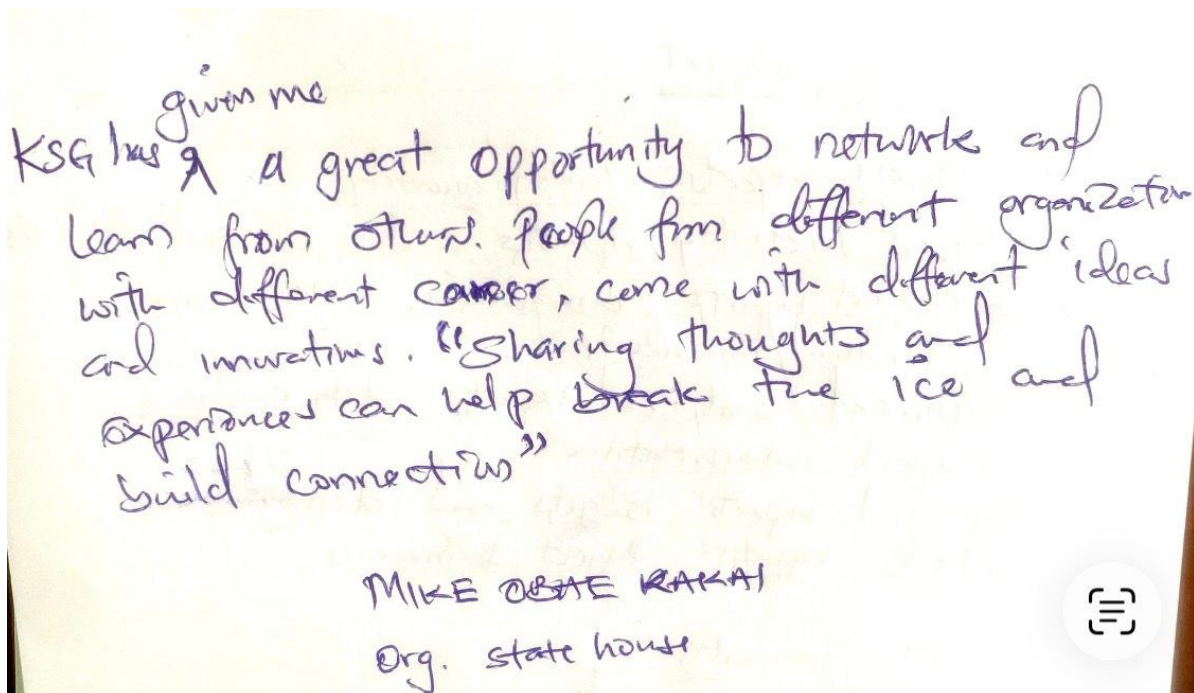 given me
KSG has a great opportunity to network and
learn from others. People from different organization
with different career, come with different ideas
and innovations. "Sharing thoughts and
experiences can help break the ice and
build connections"
MIKE KAKAI
Org. state house